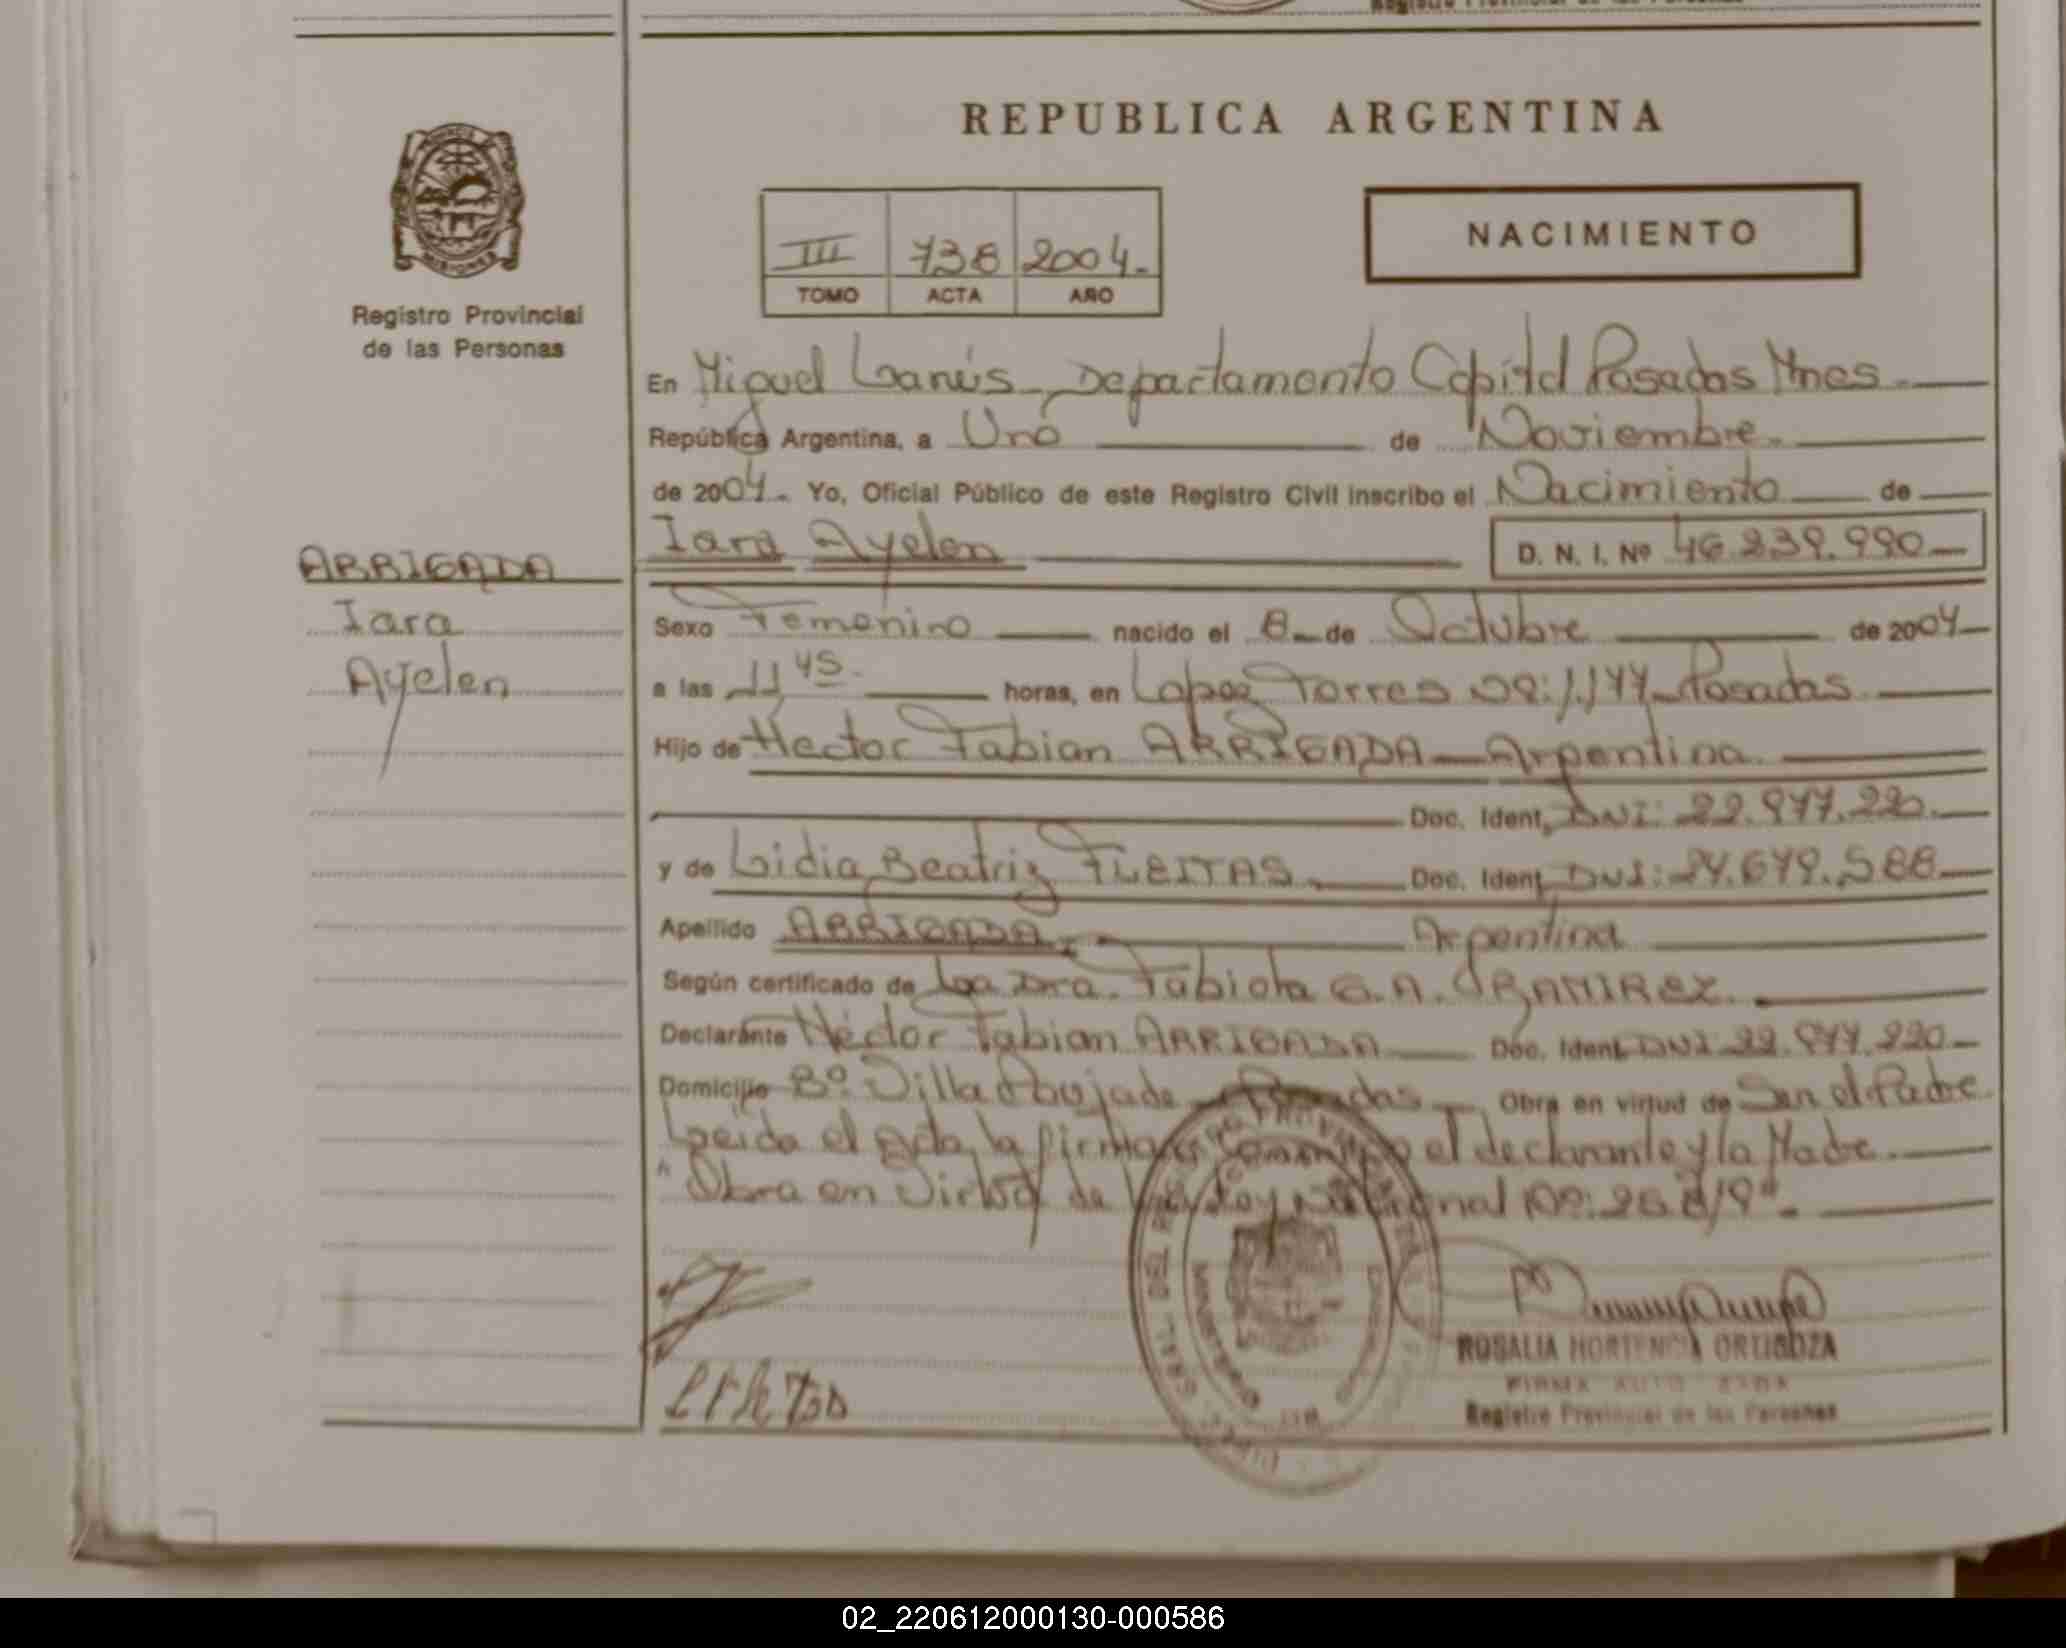 REPUBLICA ARGENTINA
NACIMIENTO
III 738 2004.
TOMO ACTA AÑO
MISIONES
Registro Provincial
de las Personas
En Miguel Lanús - Departamento Capital Posadas Mnes.
República Argentina, a Uno de Noviembre.
de 2004. Yo, Oficial Público de este Registro Civil inscribo el Nacimiento de
Iara Ayelen D. N. I. Nº 46.239.990
ARRIGADA
Iara
Ayelen
Sexo Femenino nacido el 8 de Octubre de 2004
a las 11 45. horas, en Lopez Torres Nº: 1.177 Posadas
Hijo de Hector Fabian ARRIGADA - Argentina.
Doc. Ident. DNI: 22.977.220.
y de Lidia Beatriz FLEITAS. Doc. Ident. DNI: 24.679.588
Apellido ARRIGADA. Argentina
Según certificado de La Dra. Fabiola G. A. RAMIREZ.
Declarante Héctor Fabian ARRIGADA Doc. Ident. DNI 22.977.220
Domicilio Bº. Villa Poujade - Posadas Obra en virtud de Ser el Padre
Leida el Acta, la firman conmigo el declarante y la Madre.
"Obra en Virtud de Ley Nacional Nº:
ROSALIA HORTENCIA ORTIGOZA
Registro Provincial de las Personas
02_220612000130-000586